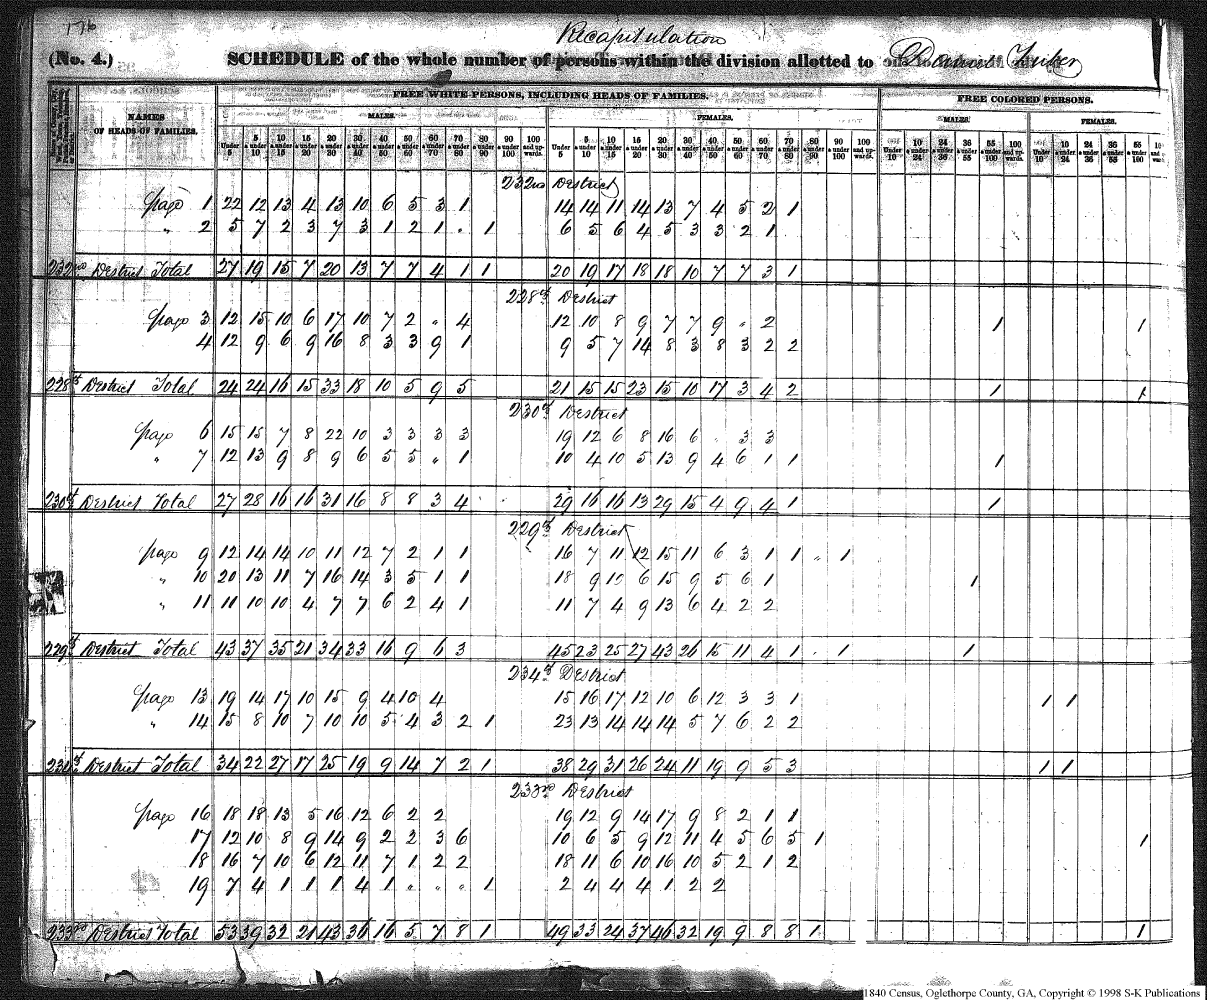 176
Recapitulation
(No. 4.) SCHEDULE of the whole number of persons within the division allotted to
FREE WHITE PERSONS, INCLUDING HEADS OF FAMILIES. FREE COLORED PERSONS.
NAMES OF HEADS OF FAMILIES.
MALES. FEMALES. MALES. FEMALES.
Under 5 5 & under 10 10 & under 15 15 & under 20 20 & under 30 30 & under 40 40 & under 50 50 & under 60 60 & under 70 70 & under 80 80 & under 90 90 & under 100 100 and upwards. Under 5 5 & under 10 10 & under 15 15 & under 20 20 & under 30 30 & under 40 40 & under 50 50 & under 60 60 & under 70 70 & under 80 80 & under 90 90 & under 100 100 and upwards. Under 10 10 & under 24 24 & under 36 36 & under 55 55 & under 100 100 and upwards. Under 10 10 & under 24 24 & under 36 36 & under 55 55 & under 100
232nd District
page 1 22 12 13 4 13 10 6 5 3 1 14 14 11 14 13 7 4 5 2 1
" 2 5 7 2 3 7 3 1 2 1 . 1 6 5 6 4 5 3 3 2 1
232nd District Total 27 19 15 7 20 13 7 7 4 1 1 20 19 17 18 18 10 7 7 3 1
228th District
page 3 12 15 10 6 17 10 7 2 " 4 12 10 8 9 7 7 9 " 2 1 1
4 12 9 6 9 16 8 3 3 9 1 9 5 7 14 8 3 8 3 2 2
228th District Total 24 24 16 15 33 18 10 5 9 5 21 15 15 23 15 10 17 3 4 2 1 1
230th District
page 6 15 15 7 8 22 10 3 3 3 3 19 12 6 8 16 6 . 3 3
" 7 12 13 9 8 9 6 5 5 " 1 10 4 10 5 13 9 4 6 1 1 1
230th District Total 27 28 16 16 31 16 8 8 3 4 29 16 16 13 29 15 4 9 4 1 1
229th District
page 9 12 14 14 10 11 12 7 2 1 1 16 7 11 12 15 11 6 3 1 1 " 1
" 10 20 13 11 7 16 14 3 5 1 1 18 9 10 6 15 9 5 6 1 1
" 11 11 10 10 4 7 7 6 2 4 1 11 7 4 9 13 6 4 2 2
229th District Total 43 37 35 21 34 33 16 9 6 3 45 23 25 27 43 26 15 11 4 1 . 1 1
234th District
page 13 19 14 17 10 15 9 4 10 4 15 16 17 12 10 6 12 3 3 1 1 1
" 14 15 8 10 7 10 10 5 4 3 2 1 23 13 14 14 14 5 7 6 2 2
234th District Total 34 22 27 17 25 19 9 14 7 2 1 38 29 31 26 24 11 19 9 5 3 1 1
233rd District
page 16 18 18 13 5 16 12 6 2 2 19 12 9 14 17 9 8 2 1 1
17 12 10 8 9 14 9 2 2 3 6 10 6 5 9 12 11 4 5 6 5 1 1
18 16 7 10 6 12 11 7 1 2 2 18 11 6 10 16 10 5 2 1 2
19 7 4 1 1 1 4 1 " " " 1 2 4 4 4 1 2 2
233rd District Total 53 39 32 21 43 36 16 5 7 8 1 49 33 24 37 46 32 19 9 8 8 1 1
1840 Census, Oglethorpe County, GA, Copyright © 1998 S-K Publications